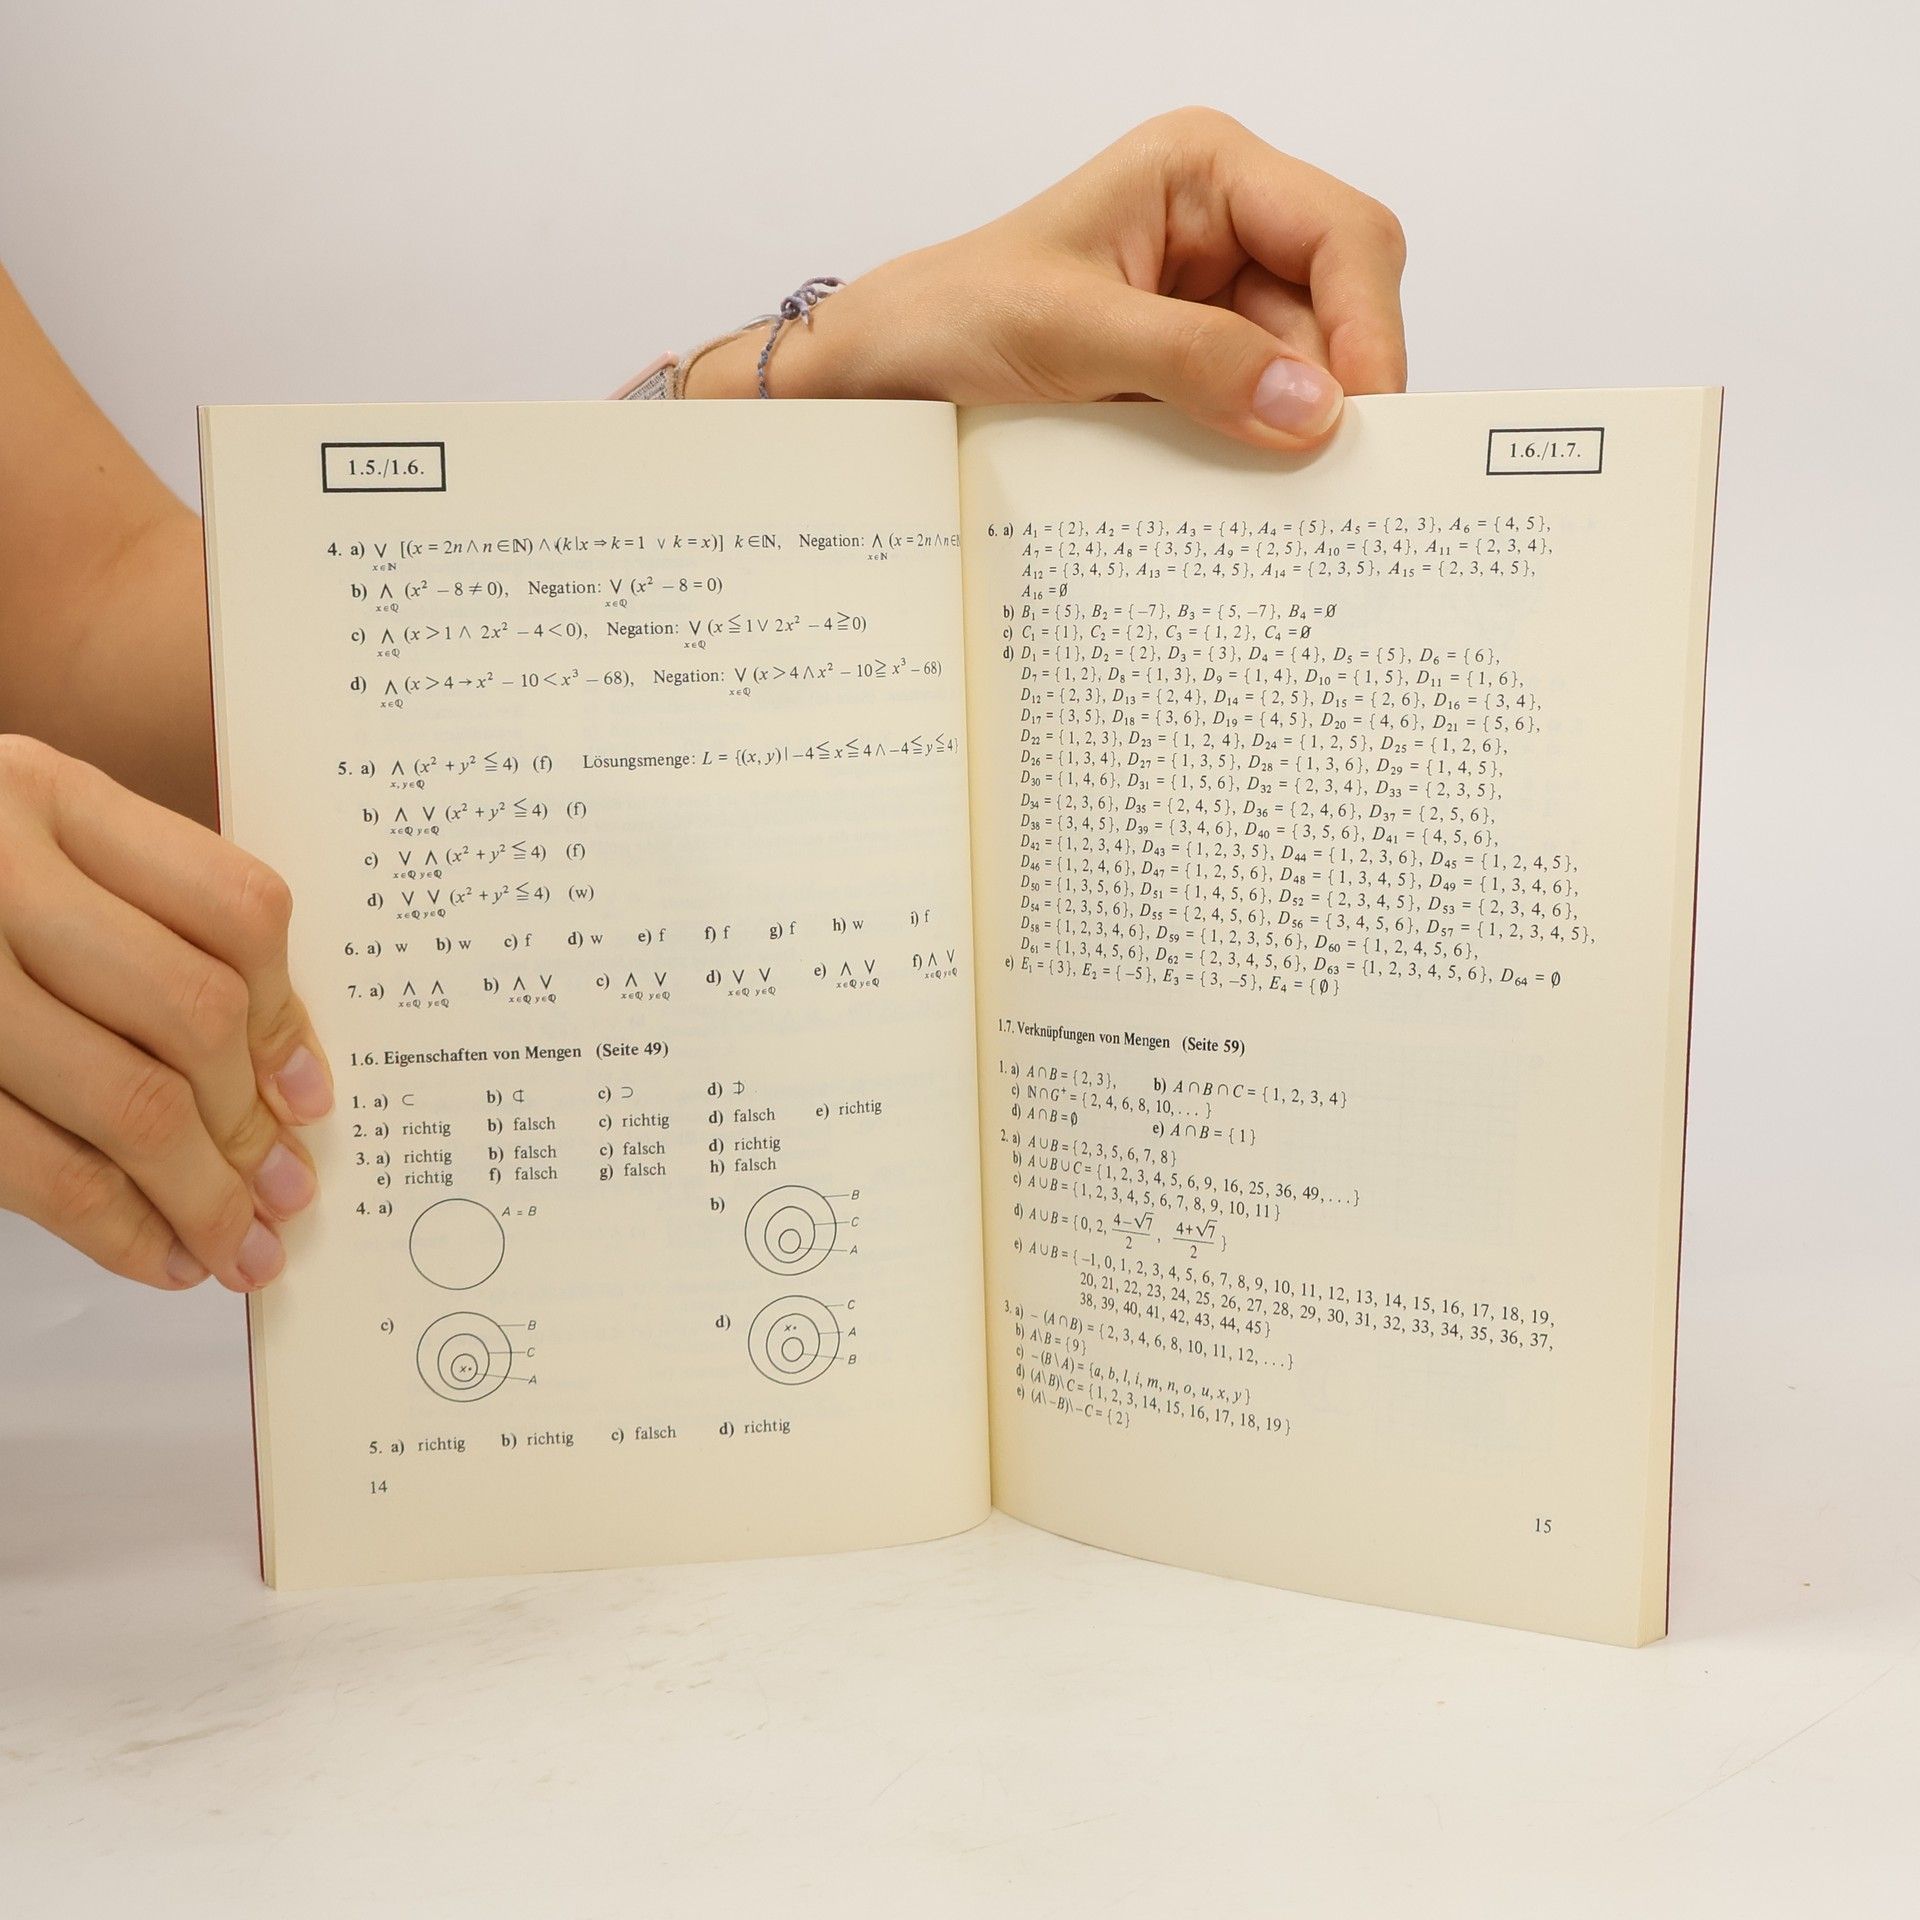 1.5./1.6.
4. a) ⋁ [(x = 2n ∧ n ∈ ℕ) ∧ (k|x ⇒ k = 1 ∨ k = x)] k ∈ ℕ, Negation: ⋀ (x = 2n ∧ n ∈
x∈ℕ x∈ℕ
b) ⋀ (x² − 8 ≠ 0), Negation: ⋁ (x² − 8 = 0)
x∈ℚ x∈ℚ
c) ⋀ (x > 1 ∧ 2x² − 4 < 0), Negation: ⋁ (x ≦ 1 ∨ 2x² − 4 ≧ 0)
x∈ℚ x∈ℚ
d) ⋀ (x > 4 → x² − 10 < x³ − 68), Negation: ⋁ (x > 4 ∧ x² − 10 ≧ x³ − 68)
x∈ℚ x∈ℚ
5. a) ⋀ (x² + y² ≦ 4) (f) Lösungsmenge: L = {(x, y)| −4 ≦ x ≦ 4 ∧ −4 ≦ y ≦ 4}
x, y∈ℚ
b) ⋀ ⋁ (x² + y² ≦ 4) (f)
x∈ℚ y∈ℚ
c) ⋁ ⋀ (x² + y² ≦ 4) (f)
x∈ℚ y∈ℚ
d) ⋁ ⋁ (x² + y² ≦ 4) (w)
x∈ℚ y∈ℚ
6. a) w b) w c) f d) w e) f f) f g) f h) w i) f
7. a) ⋀ ⋀ b) ⋀ ⋁ c) ⋀ ⋁ d) ⋁ ⋁ e) ⋀ ⋁ f) ⋀ ⋁
x∈ℚ y∈ℚ x∈ℚ y∈ℚ x∈ℚ y∈ℚ x∈ℚ y∈ℚ x∈ℚ y∈ℚ x∈ℚ y∈ℚ
1.6. Eigenschaften von Mengen (Seite 49)
1. a) ⊂ b) ⊄ c) ⊃ d) ⊅
2. a) richtig b) falsch c) richtig d) falsch e) richtig
3. a) richtig b) falsch c) falsch d) richtig
e) richtig f) falsch g) falsch h) falsch
4. a) A = B b) B
C
A
c) B
C
x•
A
d) C
x•
A
B
5. a) richtig b) richtig c) falsch d) richtig
14
1.6./1.7.
6. a) A₁ = {2}, A₂ = {3}, A₃ = {4}, A₄ = {5}, A₅ = {2, 3}, A₆ = {4, 5},
A₇ = {2, 4}, A₈ = {3, 5}, A₉ = {2, 5}, A₁₀ = {3, 4}, A₁₁ = {2, 3, 4},
A₁₂ = {3, 4, 5}, A₁₃ = {2, 4, 5}, A₁₄ = {2, 3, 5}, A₁₅ = {2, 3, 4, 5},
A₁₆ = ∅
b) B₁ = {5}, B₂ = {−7}, B₃ = {5, −7}, B₄ = ∅
c) C₁ = {1}, C₂ = {2}, C₃ = {1, 2}, C₄ = ∅
d) D₁ = {1}, D₂ = {2}, D₃ = {3}, D₄ = {4}, D₅ = {5}, D₆ = {6},
D₇ = {1, 2}, D₈ = {1, 3}, D₉ = {1, 4}, D₁₀ = {1, 5}, D₁₁ = {1, 6},
D₁₂ = {2, 3}, D₁₃ = {2, 4}, D₁₄ = {2, 5}, D₁₅ = {2, 6}, D₁₆ = {3, 4},
D₁₇ = {3, 5}, D₁₈ = {3, 6}, D₁₉ = {4, 5}, D₂₀ = {4, 6}, D₂₁ = {5, 6},
D₂₂ = {1, 2, 3}, D₂₃ = {1, 2, 4}, D₂₄ = {1, 2, 5}, D₂₅ = {1, 2, 6},
D₂₆ = {1, 3, 4}, D₂₇ = {1, 3, 5}, D₂₈ = {1, 3, 6}, D₂₉ = {1, 4, 5},
D₃₀ = {1, 4, 6}, D₃₁ = {1, 5, 6}, D₃₂ = {2, 3, 4}, D₃₃ = {2, 3, 5},
D₃₄ = {2, 3, 6}, D₃₅ = {2, 4, 5}, D₃₆ = {2, 4, 6}, D₃₇ = {2, 5, 6},
D₃₈ = {3, 4, 5}, D₃₉ = {3, 4, 6}, D₄₀ = {3, 5, 6}, D₄₁ = {4, 5, 6},
D₄₂ = {1, 2, 3, 4}, D₄₃ = {1, 2, 3, 5}, D₄₄ = {1, 2, 3, 6}, D₄₅ = {1, 2, 4, 5},
D₄₆ = {1, 2, 4, 6}, D₄₇ = {1, 2, 5, 6}, D₄₈ = {1, 3, 4, 5}, D₄₉ = {1, 3, 4, 6},
D₅₀ = {1, 3, 5, 6}, D₅₁ = {1, 4, 5, 6}, D₅₂ = {2, 3, 4, 5}, D₅₃ = {2, 3, 4, 6},
D₅₄ = {2, 3, 5, 6}, D₅₅ = {2, 4, 5, 6}, D₅₆ = {3, 4, 5, 6}, D₅₇ = {1, 2, 3, 4, 5},
D₅₈ = {1, 2, 3, 4, 6}, D₅₉ = {1, 2, 3, 5, 6}, D₆₀ = {1, 2, 4, 5, 6},
D₆₁ = {1, 3, 4, 5, 6}, D₆₂ = {2, 3, 4, 5, 6}, D₆₃ = {1, 2, 3, 4, 5, 6}, D₆₄ = ∅
e) E₁ = {3}, E₂ = {−5}, E₃ = {3, −5}, E₄ = {∅}
1.7. Verknüpfungen von Mengen (Seite 59)
1. a) A∩B = {2, 3}, b) A∩B∩C = {1, 2, 3, 4}
c) ℕ∩G⁺ = {2, 4, 6, 8, 10, . . . }
d) A∩B = ∅ e) A∩B = {1}
2. a) A∪B = {2, 3, 5, 6, 7, 8}
b) A∪B∪C = {1, 2, 3, 4, 5, 6, 9, 16, 25, 36, 49, . . . }
c) A∪B = {1, 2, 3, 4, 5, 6, 7, 8, 9, 10, 11}
d) A∪B = {0, 2, (4−√7)/2, (4+√7)/2}
e) A∪B = {−1, 0, 1, 2, 3, 4, 5, 6, 7, 8, 9, 10, 11, 12, 13, 14, 15, 16, 17, 18, 19,
20, 21, 22, 23, 24, 25, 26, 27, 28, 29, 30, 31, 32, 33, 34, 35, 36, 37,
38, 39, 40, 41, 42, 43, 44, 45}
3. a) −(A∩B) = {2, 3, 4, 6, 8, 10, 11, 12, . . . }
b) A\B = {9}
c) −(B\A) = {a, b, l, i, m, n, o, u, x, y}
d) (A\B)\C = {1, 2, 3, 14, 15, 16, 17, 18, 19}
e) (A\−B)\−C = {2}
15